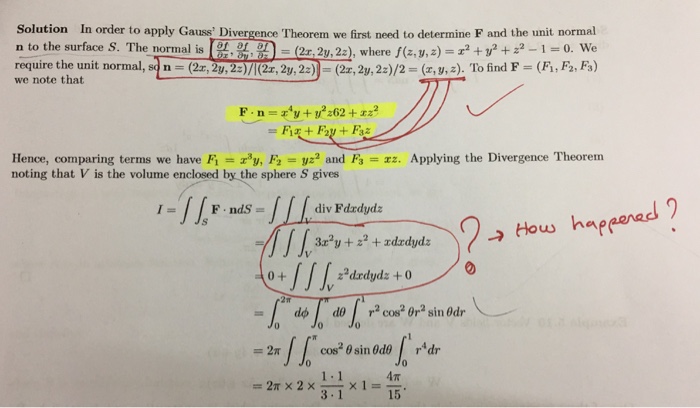 Solution In order to apply Gauss' Divergence Theorem we first need to determine F and the unit normal
n to the surface S. The normal is (∂f/∂x, ∂f/∂y, ∂f/∂z) = (2x, 2y, 2z), where f(z, y, z) = x² + y² + z² − 1 = 0. We
require the unit normal, so n = (2x, 2y, 2z)/|(2x, 2y, 2z)| = (2x, 2y, 2z)/2 = (x, y, z). To find F = (F₁, F₂, F₃)
we note that
F · n = x⁴y + y²z62 + xz²
= F₁x + F₂y + F₃z
Hence, comparing terms we have F₁ = x³y, F₂ = yz² and F₃ = xz. Applying the Divergence Theorem
noting that V is the volume enclosed by the sphere S gives
I = ∫∫_S F · ndS = ∫∫∫_V div Fdxdydz
= ∫∫∫_V 3x²y + z² + xdxdydz
= 0 + ∫∫∫_V z²dxdydz + 0
? → How happened?
= ∫₀^2π dφ ∫₀^π dθ ∫₀^1 r² cos² θr² sin θdr
= 2π ∫∫₀^π cos² θ sin θdθ ∫₀^1 r⁴dr
= 2π × 2 × (1 · 1)/(3 · 1) × 1 = 4π/15.